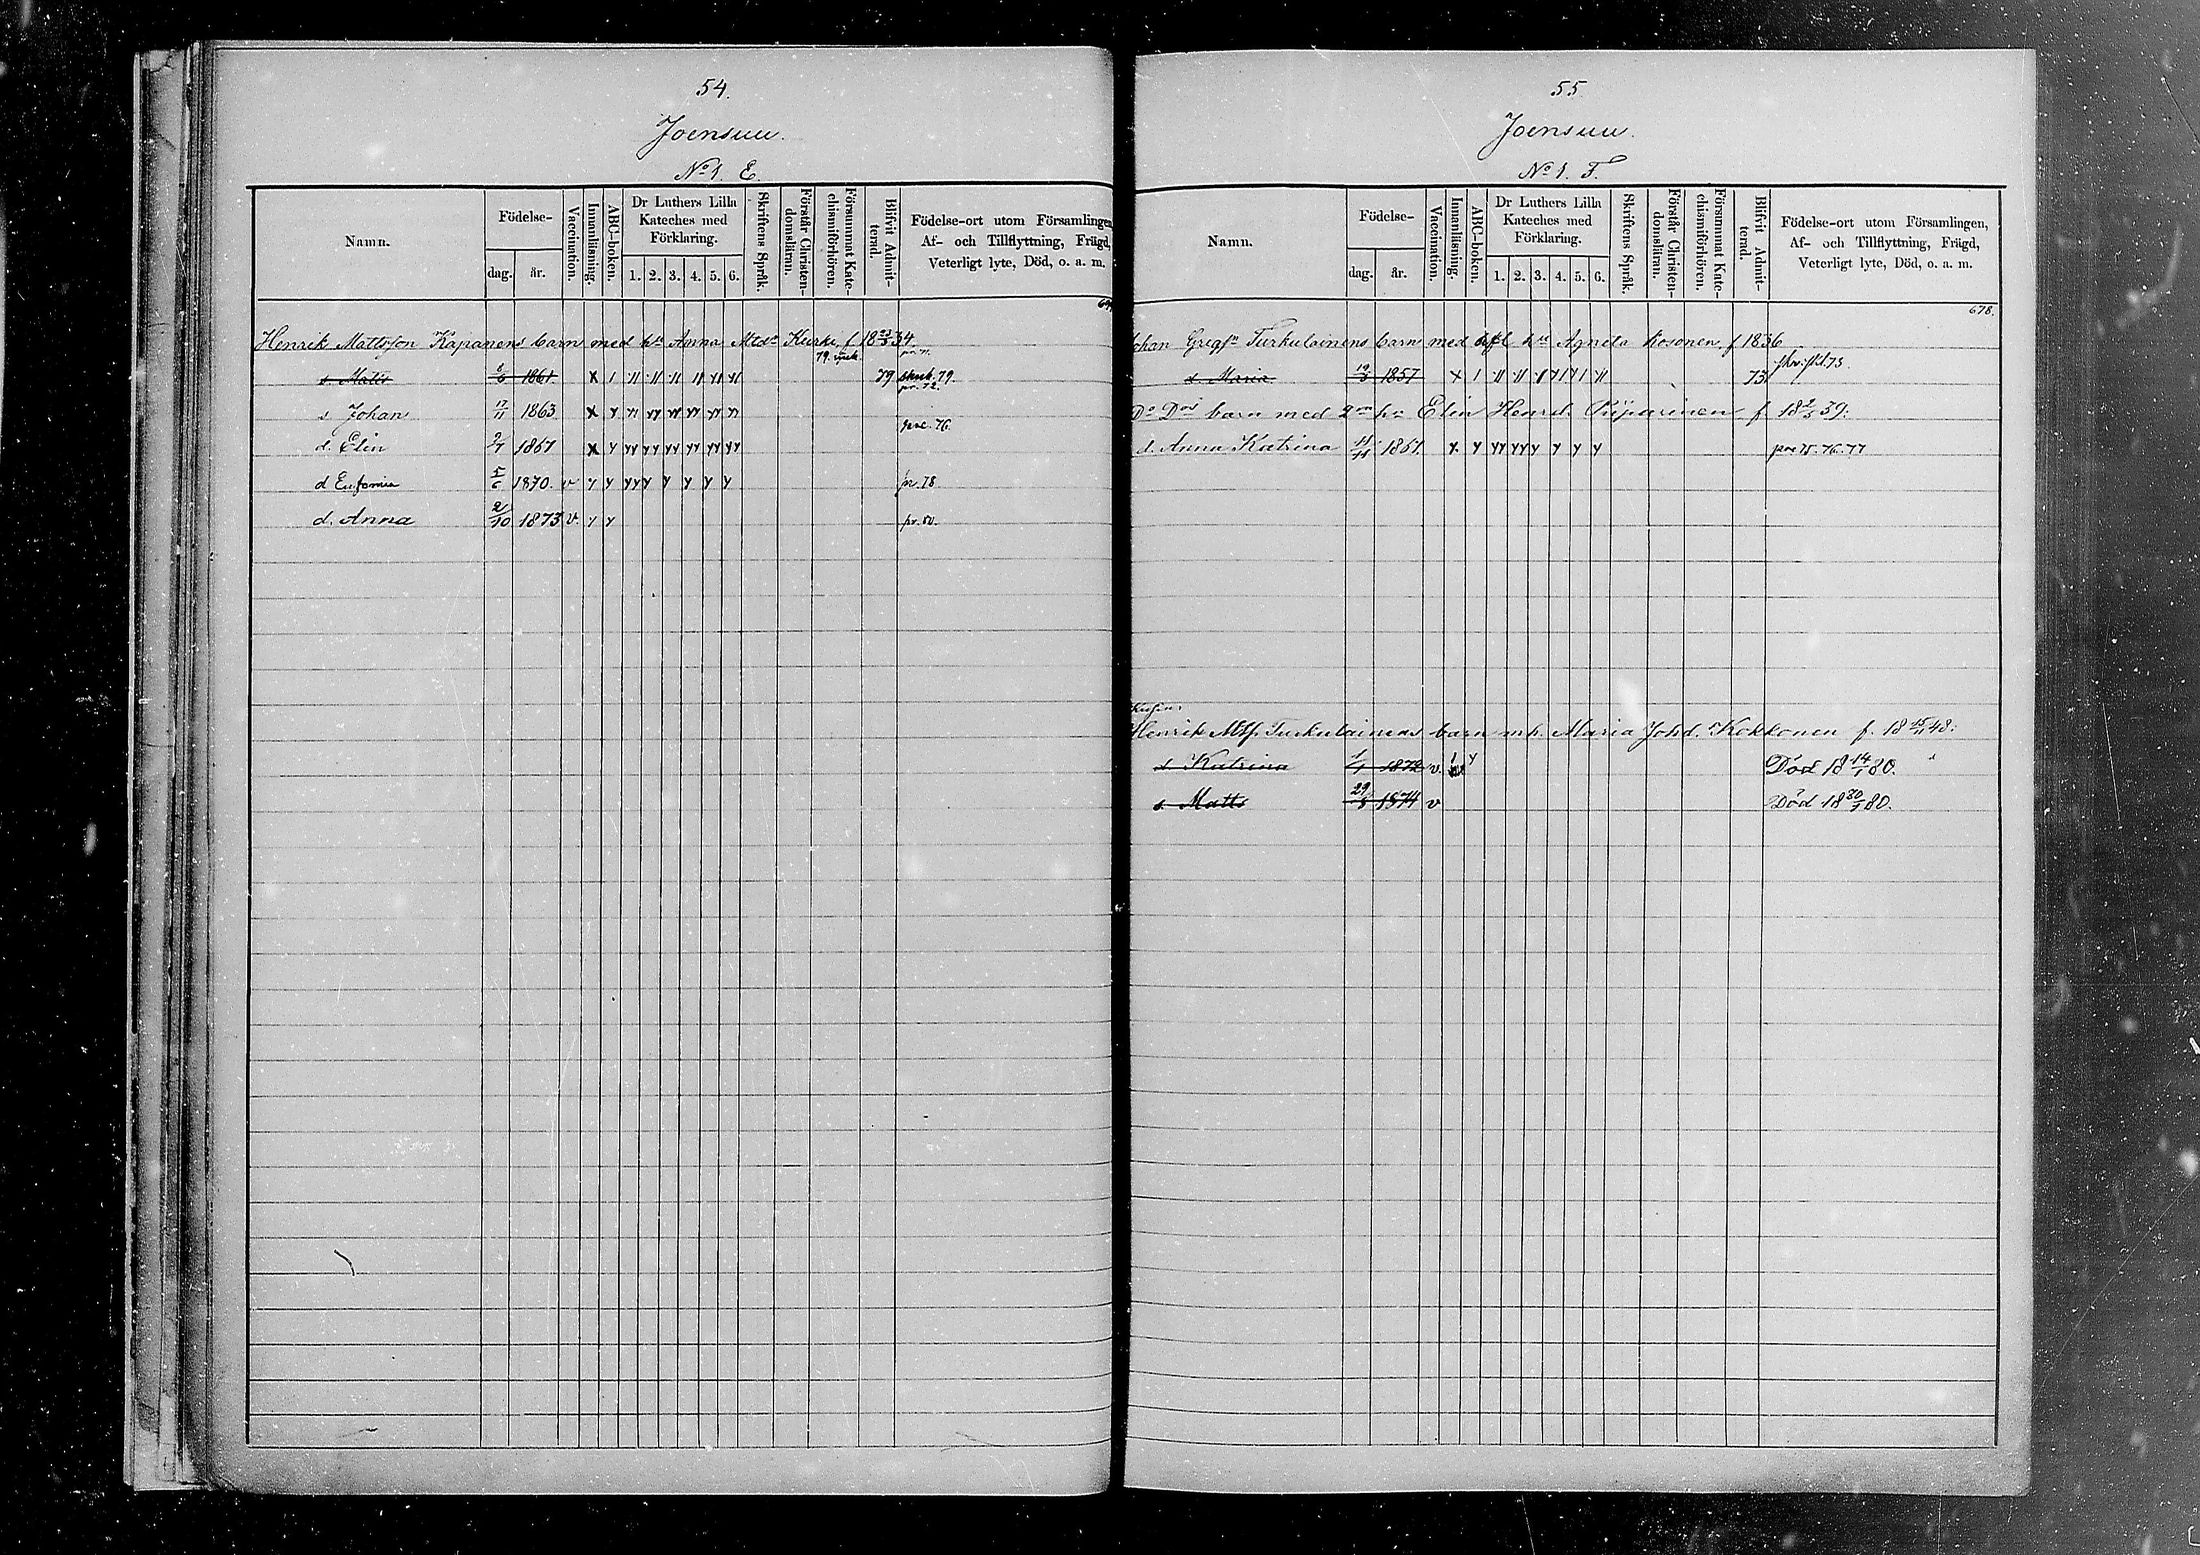 54.
Joensuu.
No 1. E.
Namn.
Födelse-
dag.
år.
Vaccination.
Innanläsning.
ABC-boken.
Dr Luthers Lilla
Kateches med
Förklaring.
1. 2. 3. 4. 5. 6.
Skriftens Språk.
Förstår Christen-
domsläran.
Försummat Kate-
chismiförhören.
Blifvit Admit-
terad.
Födelse-ort utom Församlingen,
Af- och Tillflyttning, Frägd,
Veterligt lyte, Död, o. a. m.
Henrik Mattsson Kapanens barn med h. Anna Mtdr Kurki, f 18 23/3 34.
s Matts 8/6 1861 x 79 79.
pr. 72.
s Johan 17/11 1863 x y
76.
d. Elin 2/4 1867 x y yy yy yy yy yy yy
d Eufemia 5/6 1870. v y y yy y y y y y pr. 78.
d. Anna 2/10 1873 v. y y pr. 80.
55.
Joensuu.
No 1. F.
Namn.
Födelse-
dag.
år.
Vaccination.
Innanläsning.
ABC-boken.
Dr Luthers Lilla
Kateches med
Förklaring.
1. 2. 3. 4. 5. 6.
Skriftens Språk.
Förstår Christen-
domsläran.
Försummat Kate-
chismiförhören.
Blifvit Admit-
terad.
Födelse-ort utom Församlingen,
Af- och Tillflyttning, Frägd,
Veterligt lyte, Död, o. a. m.
678.
Johan Gregsn Turkulainens barn med h. Agneta Kosonen, f 1836
d. Maria 1857 x 73
Do Dos barn med 2 h. Elin Henrd. Piiparinen f. 18 2/5 39.
d. Anna Katrina 1867. x y yy yy y y y y 75. 76. 77
Henrik Mtss. Turkulainens barn m h. Maria Johd. Kokkonen f. 18 15/11 48.
d Katrina 1/1 1872 v. Död 18 14/1 80.
s Matts 29/8 1874 v Död 18 30/1 80.